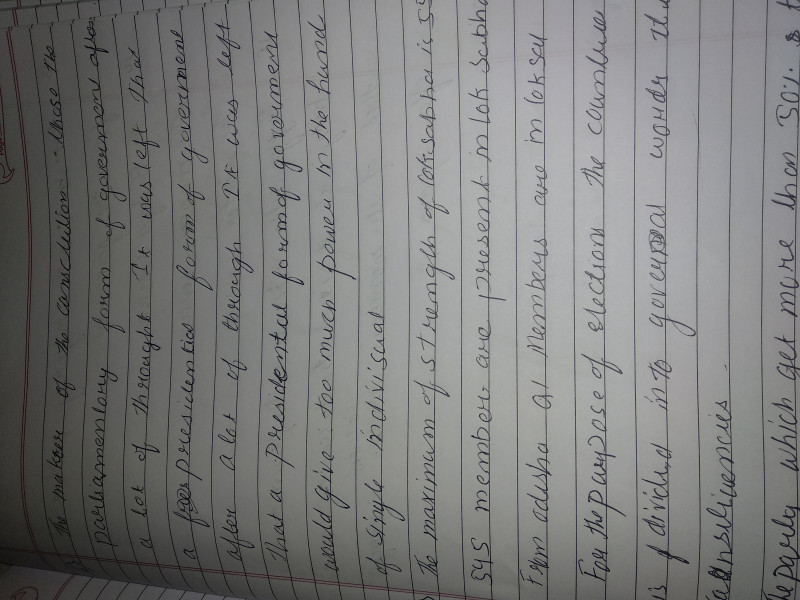 The makers of the constitution chose the
parliamentory form of government after
a lot of throught It was left that
a presidential form of goverment
after a lot of through It was left
That a presidental form of goverment
would give too much power in the hand
of single indivisual
The maximum of strength of loksabha is 55
545 members are present in lok sabha
From odisha 21 Members are in loksa
For the purpose of election the countrie
is divided into wards th
The party which get more than 50%